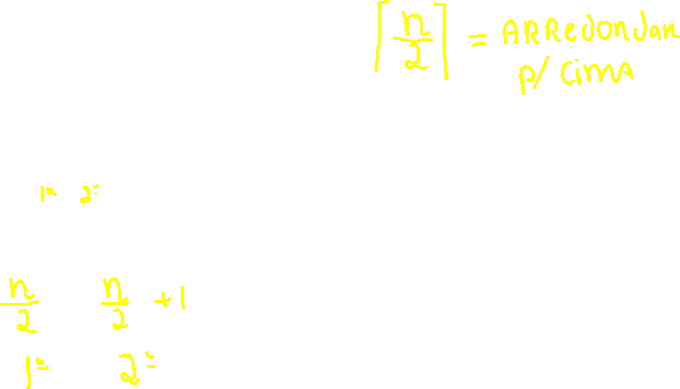 ⌈n/2⌉ = ARRedondar
p/ cima
1º 2º
n/2 n/2 + 1
1º 2º